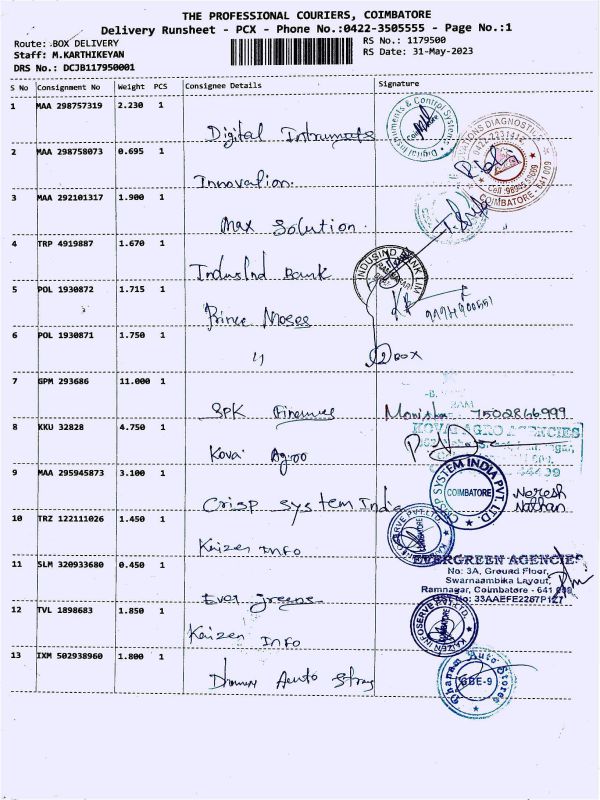 THE PROFESSIONAL COURIERS, COIMBATORE
Delivery Runsheet - PCX - Phone No.:0422-3505555 - Page No.:1
Route: BOX DELIVERY
RS No.: 1179500
Staff: M.KARTHIKEYAN
RS Date: 31-May-2023
DRS No.: DCJB117950001
S No Consignment No Weight PCS Consignee Details Signature
1 MAA 298757319 2.230 1
Digital Intruments
Digital Instruments & Control Systems
2 MAA 298758073 0.695 1
Innovation
COIMBATORE - 641 009
3 MAA 292101317 1.900 1
Max Solution
4 TRP 4919887 1.670 1
IndusInd Bank
INDUSIND BANK LIM
5 POL 1930872 1.715 1
Prince Moses
6 POL 1930871 1.750 1
" 2 BOX
7 GPM 293686 11.000 1
SPK Finances
Monisha 7502866999
8 KKU 32828 4.750 1
Kovai Agroo
KOVAI AGRO AGENCIES
9 MAA 295945873 3.100 1
Crisp System India
CRISP SYSTEM INDIA PVT. LTD.
COIMBATORE
Neresh
Nathan
10 TRZ 122111026 1.450 1
Kaizen Info
11 SLM 320933680 0.450 1
Ever greens
EVERGREEN AGENCIES
No: 3A, Ground Floor,
Swarnaambika Layout,
Ramnagar, Coimbatore - 641 009
No: 33AAEFE2287P1Z7
12 TVL 1898683 1.850 1
Kaizen Info
KAIZEN INFOSERVE PVT.LTD.
13 IXM 502938960 1.800 1
Auto
Dhanam Auto Stores
CBE-9